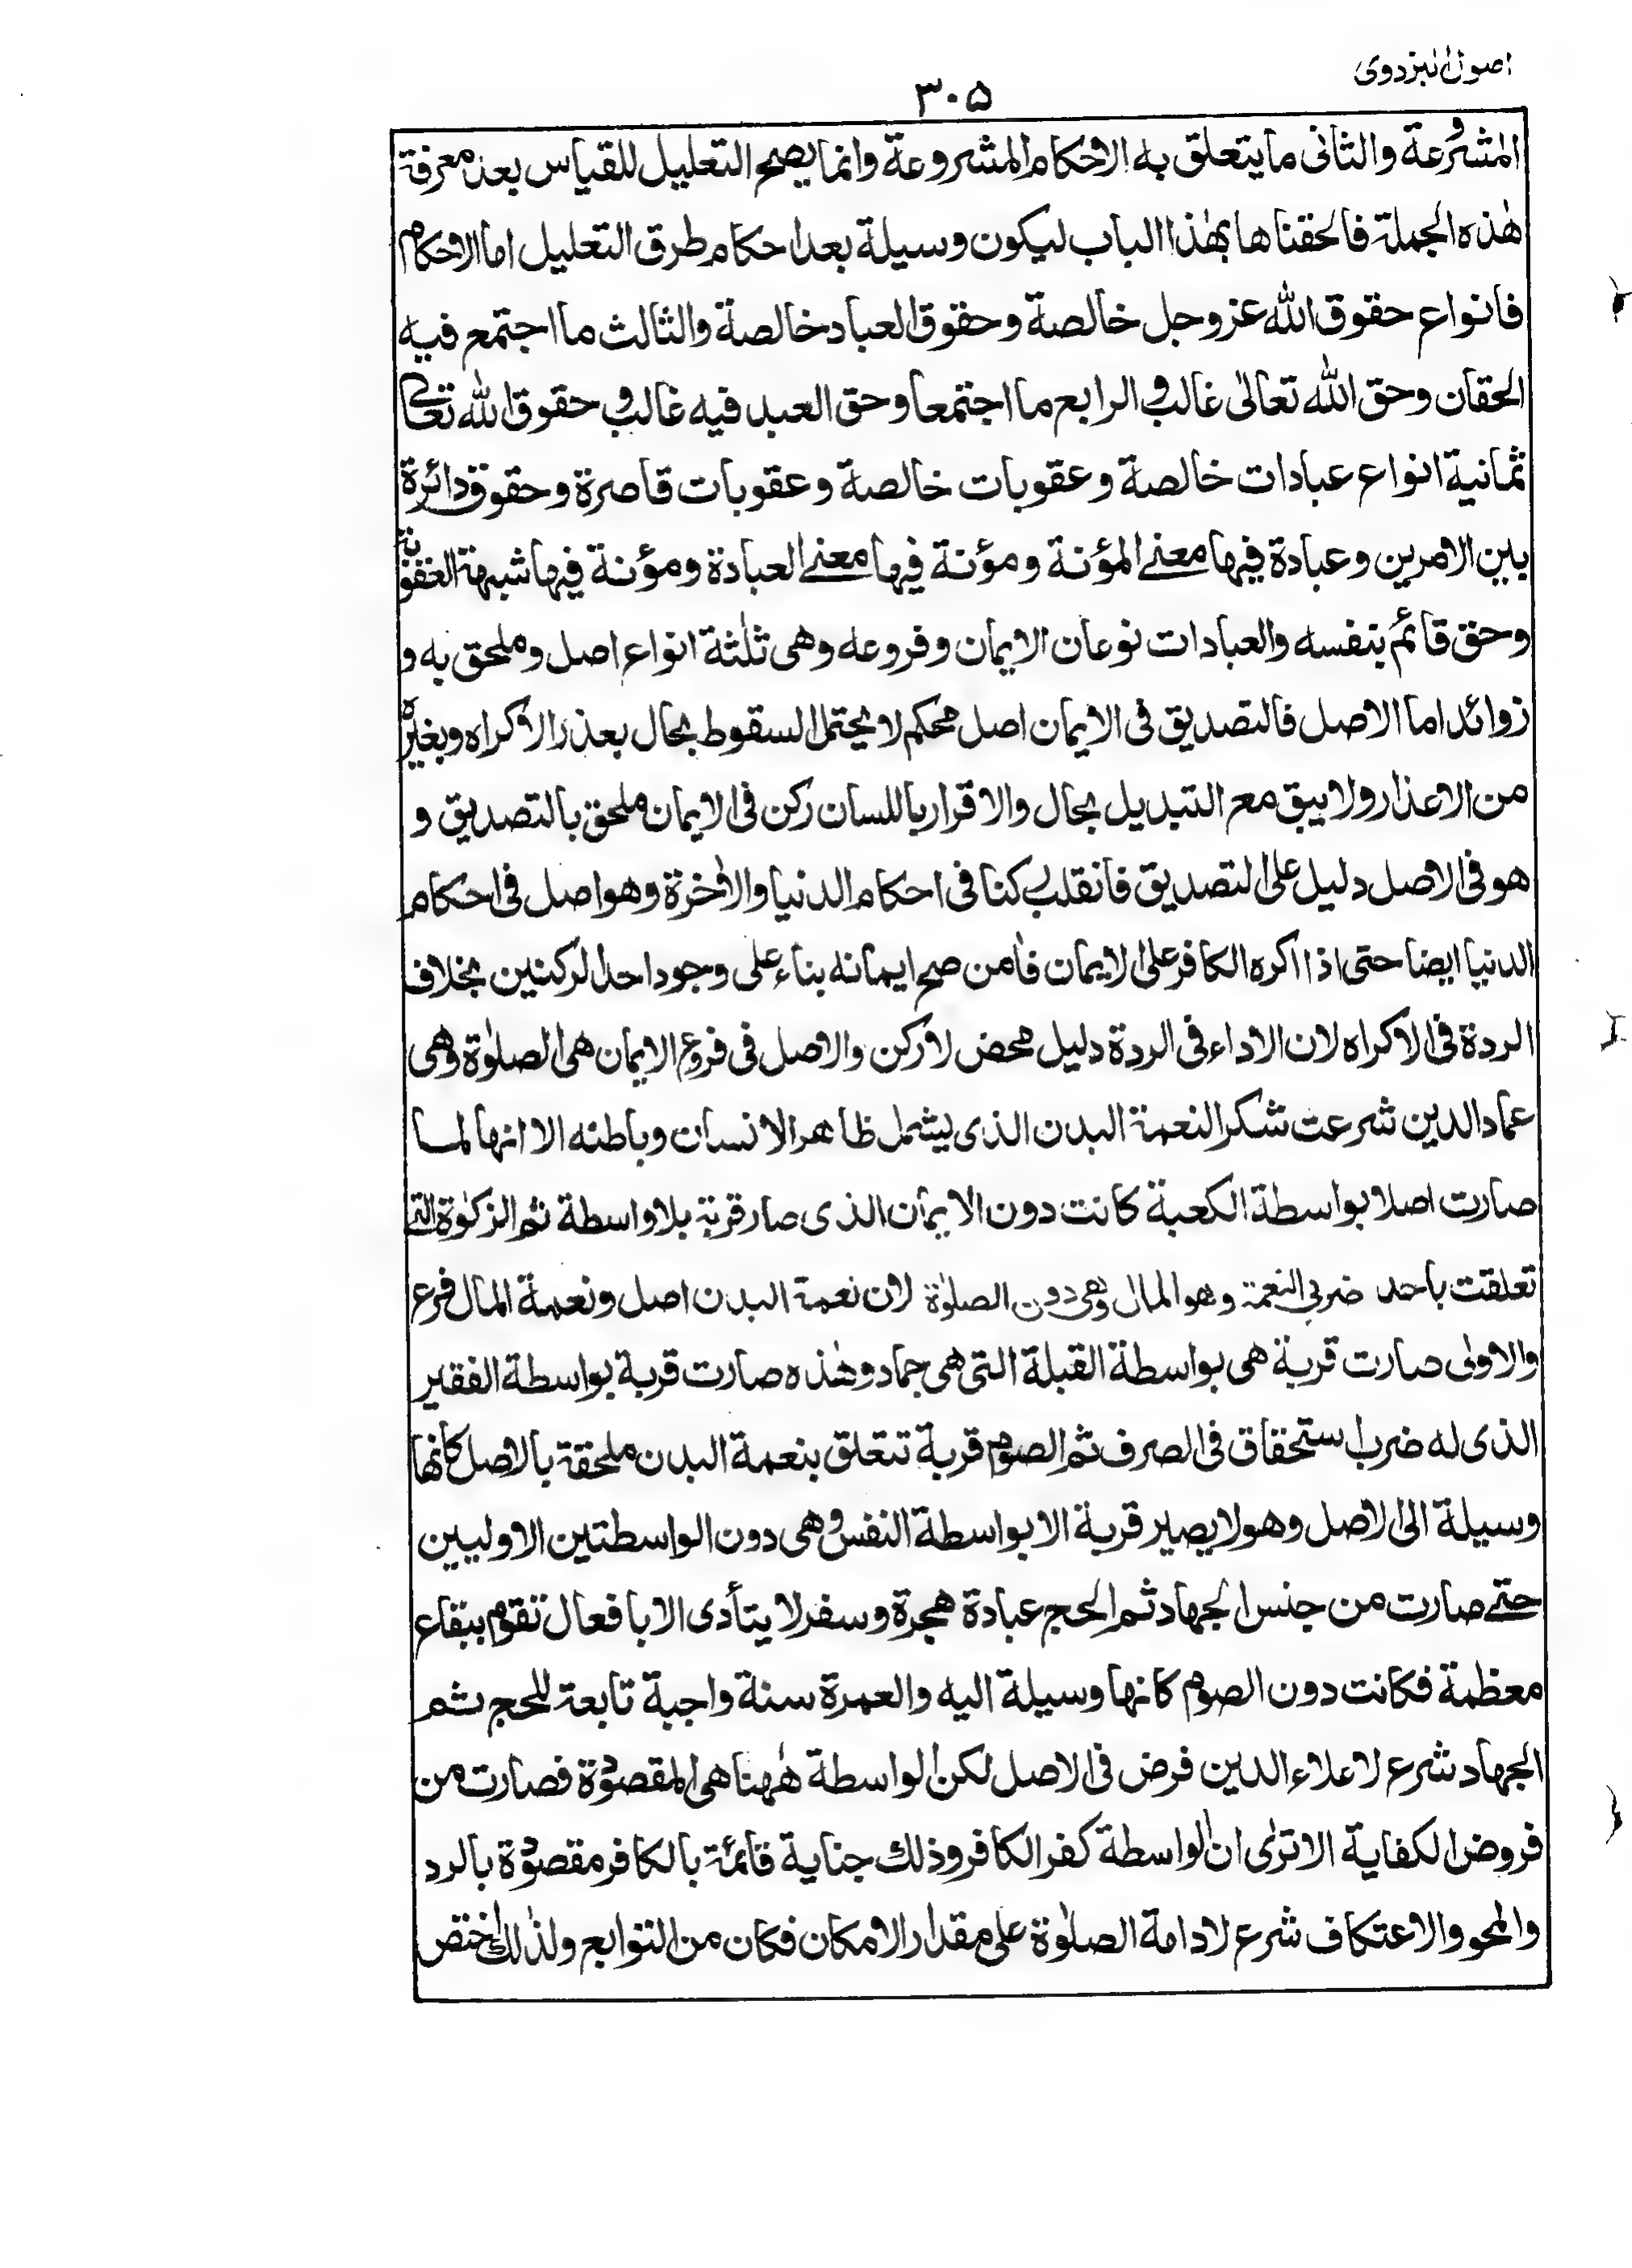 اصول البزدوی
۳۰۵
المشروعة والثانی ما یتعلق به الاحکام المشروعة وانما یصح التعلیل للقیاس بعد معرفة
هٰذه الجملة فالحقناها بهٰذا الباب لیکون وسیلة بعد احکام طرق التعلیل اما الاحکام
فانواع حقوق اللّٰه عزوجل خالصة وحقوق العباد خالصة والثالث ما اجتمع فیه
الحقان وحق اللّٰه تعالیٰ غالب والرابع ما اجتمعا وحق العبد فیه غالب وحقوق اللّٰه تعالےٰ
ثمانیة انواع عبادات خالصة وعقوبات خالصة وعقوبات قاصرة وحقوق دائرة
بین الامرین وعبادة فیها معنے المؤنة ومؤنة فیها معنے العبادة ومؤنة فیها شبهة العقوبة
وحق قائم بنفسه والعبادات نوعان الایمان وفروعه وهی ثلٰثة انواع اصل وملحق به و
زوائد اما الاصل فالتصدیق فی الایمان اصل محکم لا یحتمل السقوط بحال بعذر الاکراه وبغیره
من الاعذار ولا یبقی مع التبدیل بحال والاقرار باللسان رکن فی الایمان ملحق بالتصدیق و
هو فی الاصل دلیل علی التصدیق فانقلب رکنا فی احکام الدنیا والاٰخرة وهو اصل فی احکام
الدنیا ایضا حتی اذا اکره الکافر علی الایمان فاٰمن صح ایمانه بناء علی وجود احد الرکنین بخلاف
الردة فی الاکراه لان الاداء فی الردة دلیل محض لا رکن والاصل فی فروع الایمان هی الصلوٰة وهی
عماد الدین شرعت شکر النعمة البدن الذی یشمل ظاهر الانسان وباطنه الا انها لما
صارت اصلا بواسطة الکعبة کانت دون الایمان الذی صار قربة بلا واسطة ثم الزکوٰة التے
تعلقت باحد ضربی النعمة وهو المال وهی دون الصلوٰة لان نعمة البدن اصل ونعمة المال فرع
والاولی صارت قربة هی بواسطة القبلة التی هی جماد وهٰذه صارت قربة بواسطة الفقیر
الذی له ضرب استحقاق فی الصرف ثم الصوم قربة تتعلق بنعمة البدن ملحقة بالاصل کانها
وسیلة الی الاصل وهو لا یصیر قربة الا بواسطة النفس وهی دون الواسطتین الاولیین
حتے صارت من جنس الجهاد ثم الحج عبادة هجرة وسفر لا یتأدی الا بافعال تقوم ببقاع
معظمة فکانت دون الصوم کانها وسیلة الیه والعمرة سنة واجبة تابعة للحج ثم
الجهاد شرع لاعلاء الدین فرض فی الاصل لکن الواسطة هٰهنا هی المقصودة فصارت من
فروض الکفایة الا تریٰ ان الواسطة کفر الکافر وذلك جنایة قائمة بالکافر مقصودة بالرد
والمحو والاعتکاف شرع لادامة الصلوٰة علی مقدار الامکان فکان من التوابع ولذٰلك اختص